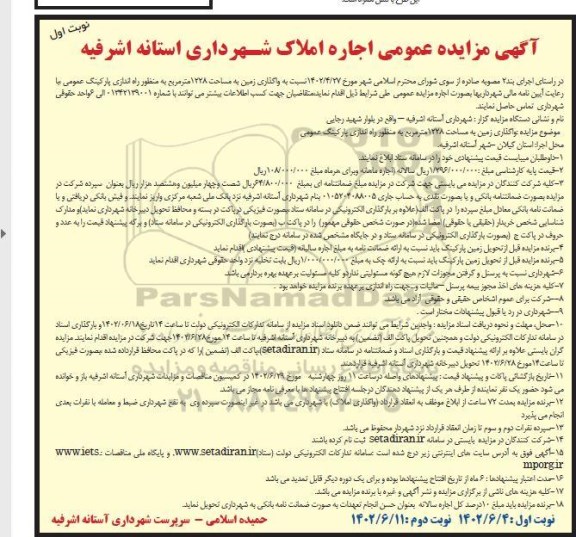 نوبت اول
آگهی مزایده عمومی اجاره املاک شهرداری آستانه اشرفیه
در راستای اجرای بند۲ مصوبه صادره از سوی شورای محترم اسلامی شهر مورخ ۱۴۰۲/۴/۲۷نسبت به واگذاری زمین به مساحت ۱۲۲۸مترمربع به منظور راه اندازی پارکینگ عمومی با
رعایت آیین نامه مالی شهرداریها بصورت اجاره مزایده عمومی طی شرایط ذیل اقدام نماید،متقاضیان جهت کسب اطلاعات بیشتر می توانند با شماره ۰۱۳۴۲۱۳۹۰۰۱ الی ۶واحد حقوقی
شهرداری تماس حاصل نمایند.
نام و نشانی دستگاه مزایده گزار : شهرداری آستانه اشرفیه – واقع در بلوار شهید رجایی
موضوع مزایده واگذاری زمین به مساحت ۱۲۲۸مترمربع به منظور راه اندازی پارکینگ عمومی
محل اجرا: استان گیلان –شهر آستانه اشرفیه.
۱–داوطلبان میبایست قیمت پیشنهادی خود را در سامانه ستاد ابلاغ نمایند.
۲–قیمت پایه کارشناسی مبلغ ۱/۲۹۶/۰۰۰/۰۰۰ریال سالانه (اجاره ماهانه ویرای هرماه مبلغ ۱۰۸/۰۰۰/۰۰۰ریال
۳–کلیه شرکت کنندگان در مزایده می بایستی جهت شرکت در مزایده مبلغ ضمانتنامه ای بمبلغ ۶۴/۸۰۰/۰۰۰ریال شصت وچهار میلیون وهشتصد هزار ریال بعنوان سپرده شرکت در
مزایده بصورت ضمانتنامه بانکی و یا بصورت نقدی به حساب جاری ۰۱۰۵۲۰۴۰۸۸۰۰۵ بنام شهرداری آستانه اشرفیه نزد بانک ملی شعبه مرکزی واریز نمایند. و فیش بانکی دریافتی و یا
ضمانت نامه بانکی معادل مبلغ سپرده را در پاکت الف(علاوه بر بارگذاری الکترونیکی در سامانه ستاد بصورت فیزیکی درپاکت در بسته و محافظ تحویل دبیرخانه شهرداری نماید)و مدارک
شناسایی شخص خریدار (حقیقی یا حقوقی) امضا شده(در صورت شخص حقوقی ممهور) را در پاکت ب (بصورت بارگذاری الکترونیکی در سامانه ستاد) و برگه پیشنهاد قیمت را به عدد و
حروف در پاکت ج (بصورت بارگذاری الکترونیکی در سامانه ستاد و در جایگاه مشخص شده در سامانه درج نمایند)
۴–برنده مزایده قبل از تحویل زمین پارکینگ باید نسبت به ارائه ضمانت نامه به مبلغ اجاره سالیانه (قیمت پیشنهادی )اقدام نماید
۵–برنده مزایده قبل از تحویل زمین پارکینگ باید نسبت به ارائه چک به مبلغ ۱/۰۰۰/۰۰۰/۰۰۰ریال بابت تخلیه نزد واحد حقوقی شهرداری اقدام نماید
۶–شهرداری نسبت به پرسنل و گرفتن مجوزات لازم هیچ گونه مسئولیتی نداردو کلیه مسئولیت بر عهده بهره بردارمی باشد.
۷–کلیه هزینه های اخذ مجوز بیمه پرسنل –مالیات و ..جهت راه اندازی بر عهده برنده مزایده خواهد بود .
۸–شرکت برای عموم اشخاص حقیقی و حقوقی آزاد می باشد.
۹–شهرداری در رد یا قبول پیشنهادات مختار است .
۱۰–محل، مهلت و نحوه دریافت اسناد مزایده : واجدین شرایط می توانند ضمن دانلود اسناد مزایده از سامانه تدارکات الکترونیکی دولت تا ساعت ۱۴تاریخ۱۴۰۲/۰۶/۱۸و بارگذاری اسناد
در سامانه تدارکات الکترونیکی دولت و همچنین تحویل پاکت الف (تضمین) به دبیرخانه شهرداری آستانه اشرفیه تا ساعت ۱۴ مورخ۱۴۰۲/۶/۲۸جهت شرکت در مزایده اقدام نمایند. مزایده
گران بایستی علاوه بر ارائه پیشنهاد قیمت و بارگذاری اسناد و ضمانتنامه در سامانه ستاد (setadiran.ir)پاکت الف (تضمین )را که در پاکت محافظ قرارداده شده بصورت فیزیکی
تا ساعت۱۴مورخ ۱۴۰۲/۶/۲۸ تحویل دبیرخانه شهرداری آستانه اشرفیه قراردهند
۱۱–تاریخ بازگشائی پاکات و پیشنهاد قیمت: پیشنهادهای واصله درساعت ۱۱ روز چهارشنبه مورخ ۱۴۰۲/۶/۲۹ در کمیسیون مناقصات و مزایدات شهرداری آستانه اشرفیه باز و خوانده
می شود حضور یک نفر نماینده از طرف هر یک از پیشنهاد دهندگان درجلسه افتتاح پیشنهاد ها با معرفی نامه مجاز می باشد.
۱۲–برنده مزایده بمدت ۷۲ ساعت از ابلاغ موظف به انعقاد قرارداد (واگذاری املاک) با شهرداری می باشد در غیر اینصورت سپرده وی به نفع شهرداری ضبط و معامله با نفرات بعدی
انجام می پذیرد
۱۳–سپرده نفرات دوم و سوم تا زمان انعقاد قرارداد نزد شهردار محفوظ می باشد.
۱۴–شرکت کنندگان در مزایده بایستی در سامانه setadiran.ir ثبت نام کرده باشند
۱۵–آگهی فوق به آدرس سایت های اینترنتی زیر درج شده است :سامانه تدارکات الکترونیکی دولت (ستاد)www.setadiran.ir. و پایگاه ملی مناقصات www.iets.
mporg.ir
۱۶–مدت اعتبار پیشنهادها : ۶ ماه از تاریخ افتتاح پیشنهادها بوده و برای یک دوره دیگر قابل تمدید می باشد
۱۷–کلیه هزینه های ناشی از برگزاری مزایده و نشر آگهی و غیره با برنده مزایده می باشد.
۱۸–برنده مزایده باید مبلغ ۱۰درصد کل اجاره سالانه بعنوان حسن انجام تعهدات به صورت ضمانت نامه بانکی به شهرداری تحویل نماید.
نوبت اول :۱۴۰۲/۶/۴ نوبت دوم :۱۴۰۲/۶/۱۱
حمیده اسلامی – سرپرست شهرداری آستانه اشرفیه